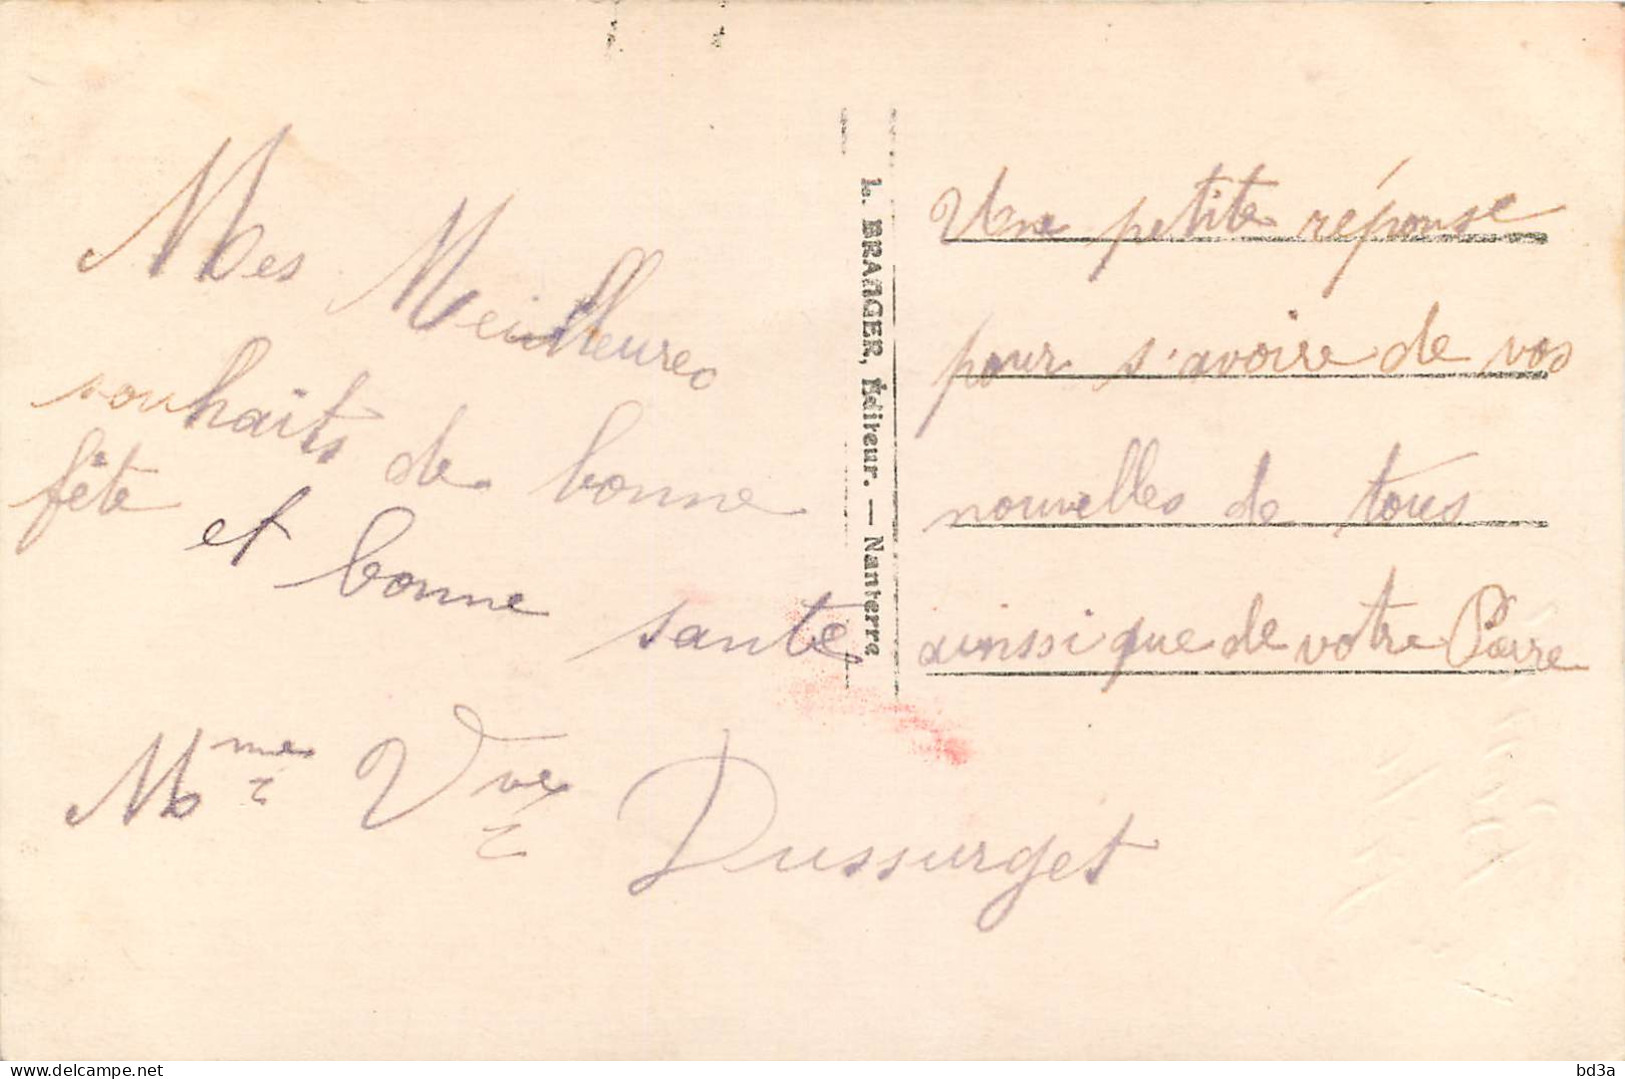 Mes Meilleures
souhaits de bonne
fête et bonne santé
Mme Vve Dussurget
L. BRAGER, Éditeur. — Nanterre
Une petite réponse
pour s'avoire de vos
nouvelles de tous
ainssi que de votre Paire
bd3a